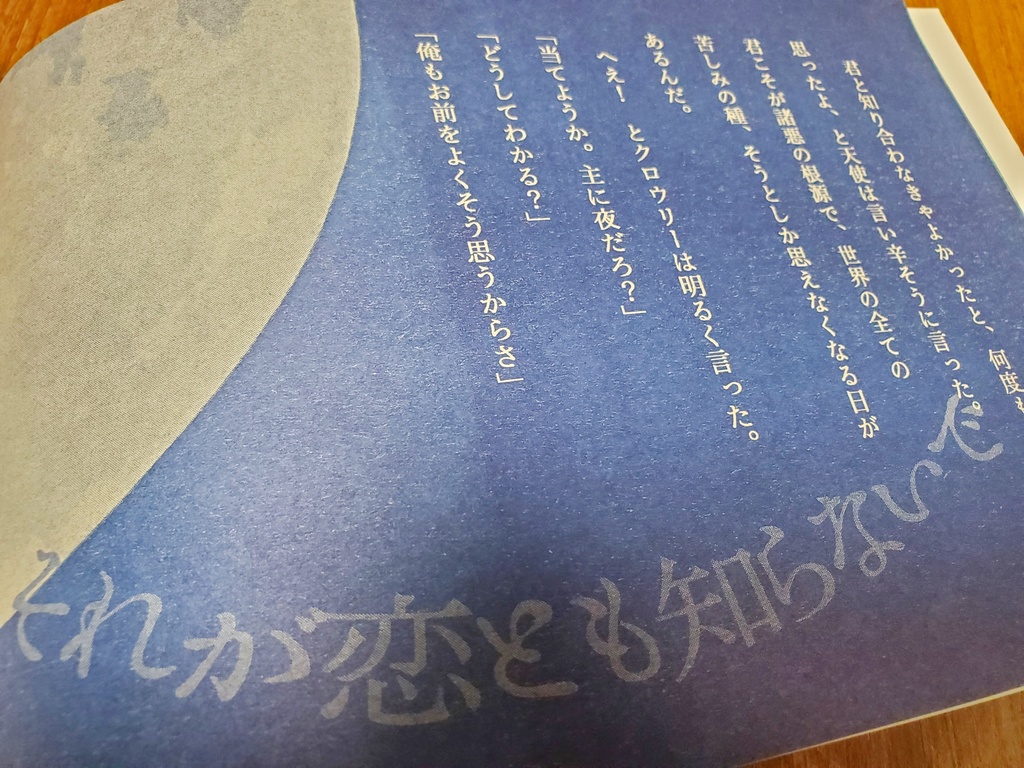 君と知り合わなきゃよかったと、何度も
思ったよ、と天使は言い辛そうに言った。
君こそが諸悪の根源で、世界の全ての
苦しみの種、そうとしか思えなくなる日が
あるんだ。
へぇ! とクロウリーは明るく言った。
「当てようか。主に夜だろ?」
「どうしてわかる?」
「俺もお前をよくそう思うからさ」
それが恋とも知らないで